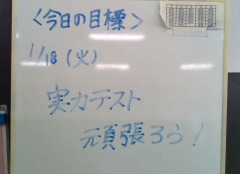 ＜今日の目標＞
1/18（火）
実力テスト
頑張ろう！